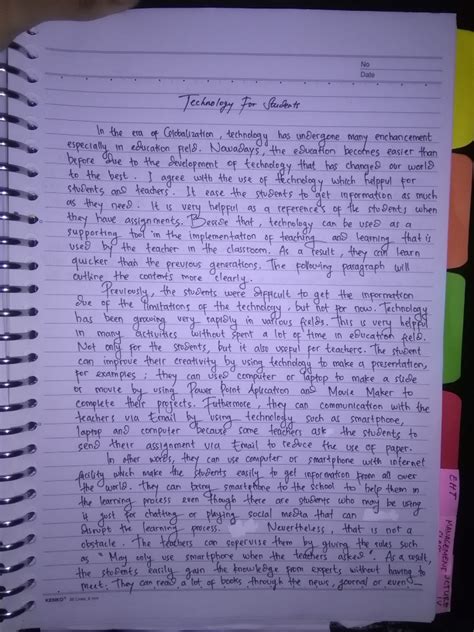 No
Date
Technology For Students
In the era of Globalization, technology has undergone many enchancement
especially in education field. Nowadays, the education becomes easier than
before due to the development of technology that has changed our world
to the best. I agree with the use of technology which helpful for
students and teachers. It ease the students to get information as much
as they need. It is very helpful as a references of the students when
they have assignments. Beside that, technology can be used as a
supporting tool in the implementation of teaching and learning that is
used by the teacher in the classroom. As a result, they can learn
quicker than the previous generations. The following paragraph will
outline the contents more clearly.
Previously, the students were difficult to get the information
due of the limitations of the technology, but not for now. Technology
has been growing very rapidly in various fields. This is very helpful
in many activities without spent a lot of time in education field.
Not only for the students, but it also useful for teachers. The student
can improve their creativity by using technology to make a presentation,
for examples; they can use computer or laptop to make a slide
or movie by using Power Point Aplication and Movie Maker to
complete their projects. Futhermore, they can communication with the
teachers via Email by using technology such as smartphone,
laptop and computer because some teachers ask the students to
send their assignment via Email to reduce the use of paper.
In other words, they can use computer or smartphone with internet
facility which make the students easily to get information from all over
the world. They can bring smartphone to the school to help them in
the learning process even though there are students who may be using
is just for chatting or playing social media that can
disrupt the learning process. Nevertheless, that is not a
obstacle. The teachers can supervise them by giving the rules such
as "May only use smartphone when the teachers asked". As a result,
the students easily gain the knowledge from experts without having to
meet. They can read a lot of books through the news, journal or even
KENKO
EMT
MANAGEMENT